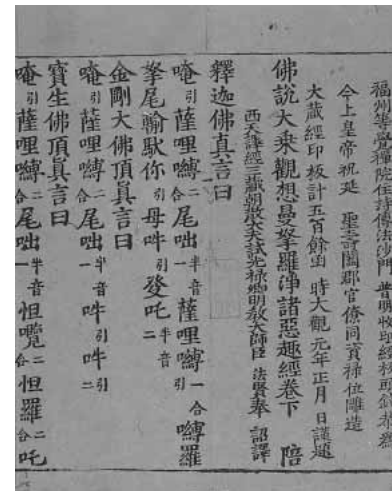 福州等覺禪院住持傳法沙門 普明收印經板頭錢恭為
今上皇帝祝延 聖壽闔郡官僚同資祿位雕造
大藏經印板計五百餘函 時大觀元年正月 日謹題
佛說大乘觀想曼拏羅淨諸惡趣經卷下 陪
西天譯經三藏朝散大夫試光祿卿明教大師臣 法賢奉 詔譯
釋迦佛真言曰
唵引薩哩嚩二合尾咄半音一薩哩嚩引二合嚩羅
拏尾輸馱你引母吽引發吒半音二
金剛大佛頂真言曰
唵引薩哩嚩二合尾咄半音一吽引吽引二
寶生佛頂真言曰
唵引薩哩嚩二合尾咄半音一怛囕二合怛羅二合吒